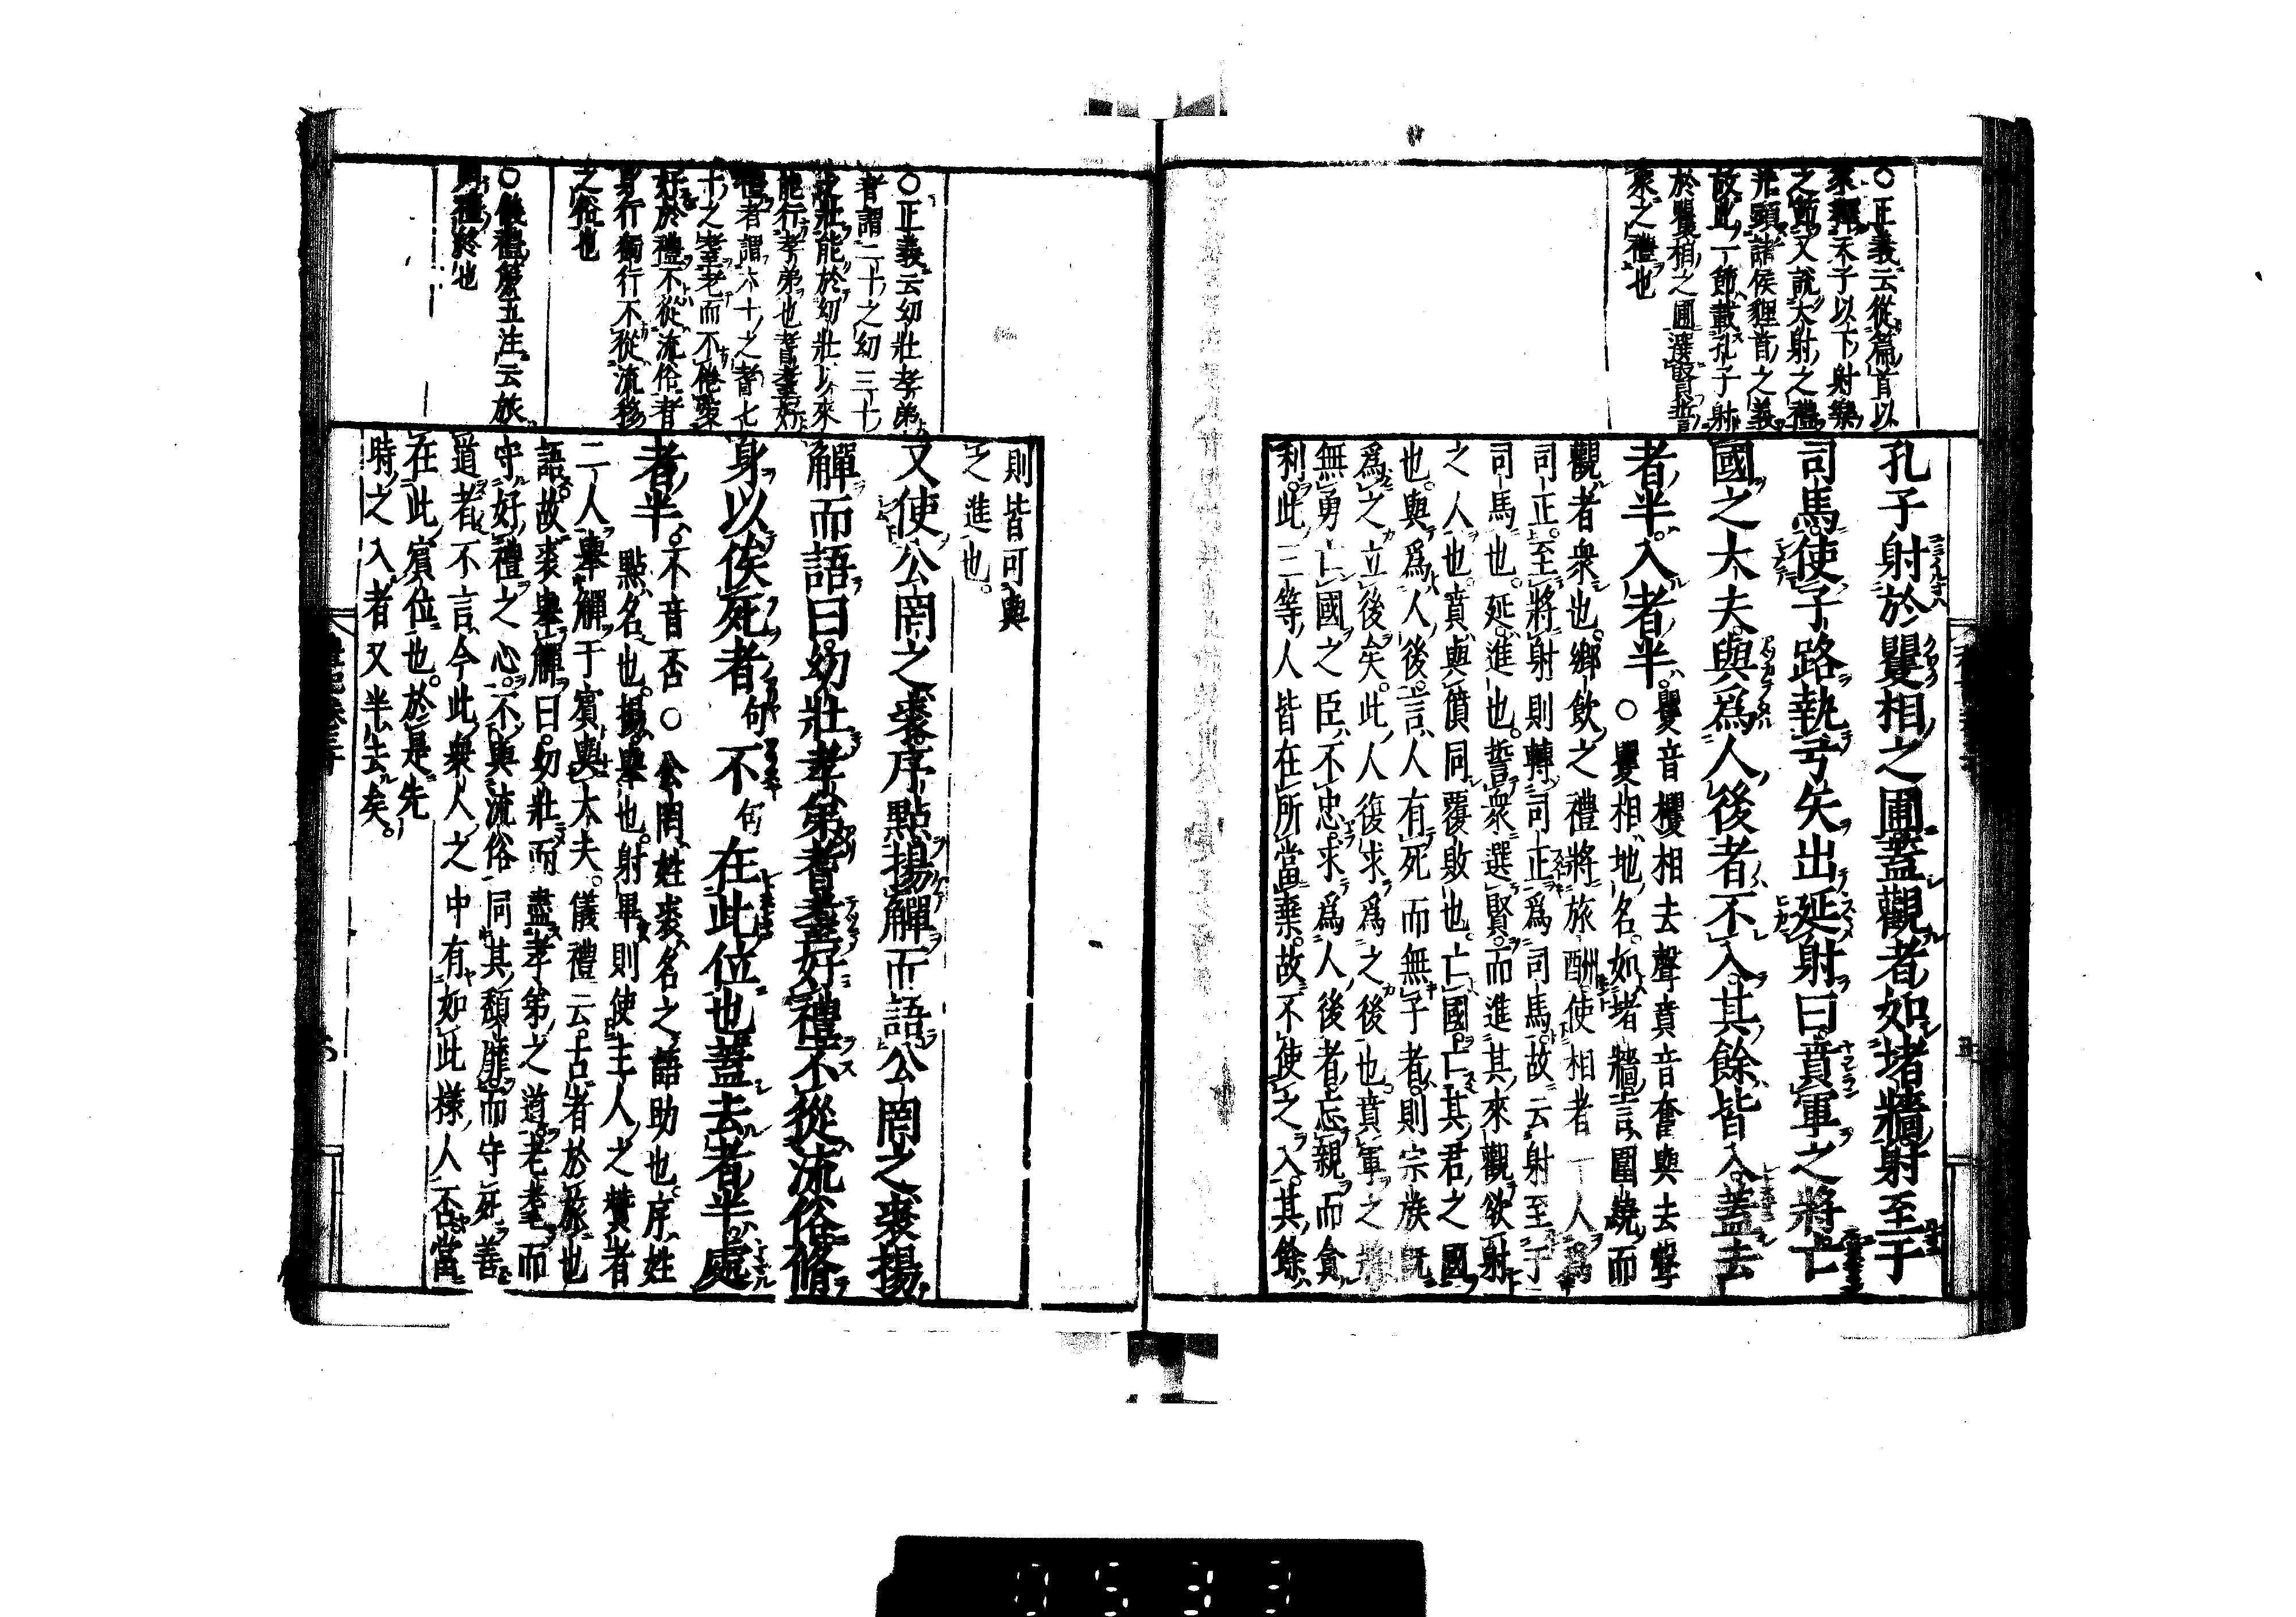 ○正義云從篇首以
來釋天子以下射樂
之節又說大射之禮
并顯諸侯貍首之義
故此一節載孔子射
於矍相之圃選賢誓
衆之禮也
孔子射於矍相之圃蓋觀者如堵牆射至于
司馬使子路執弓矢出延射曰賁軍之將亡
國之大夫與爲人後者不入其餘皆入蓋去
者半入者半矍音櫻相去聲賁音奮與去聲
○矍相地名如堵牆言圍繞而
觀者衆也鄉飲之禮將旅酬使相者一人爲
司正至將射則轉司正爲司馬故云射至于
司馬也延進也誓衆選賢而進其來觀欲射
之人也賁與僨同覆敗也亡國亡其君之國
也與爲人後言人有死而無子者則宗族旣
爲之立後矣此人復求爲之後也賁軍之將
無勇亡國之臣不忠求爲人後者忘親而貪
利此三等人皆在所當棄故不使之入其餘
則皆可與
之進也
○正義云幼壯孝弟
者謂二十之幼三十
之壯能於幼壯以來
能行孝弟也耆耋好
禮者謂六十之耆七
十之耋老而不倦敬
好於禮不從流俗者
身行獨行不從流移
之俗也
○儀禮第五注云旅
則禮終也
又使公罔之裘序點揚觶而語公罔之裘揚
觶而語曰幼壯孝弟耆耋好禮不從流俗脩
身以俟死者句不句在此位也蓋去者半處
者半不音否○公罔姓裘名之語助也序姓
點名也揚舉也射畢則使主人之贊者
二人舉觶于賓與大夫儀禮云古者於旅也
語故裘舉觶曰幼壯而盡孝弟之道老耄而
守好禮之心不與流俗同其頹靡而守死善
道者不言今此衆人之中有如此樣人否當
在此賓位也於是先
時之入者又半去矣